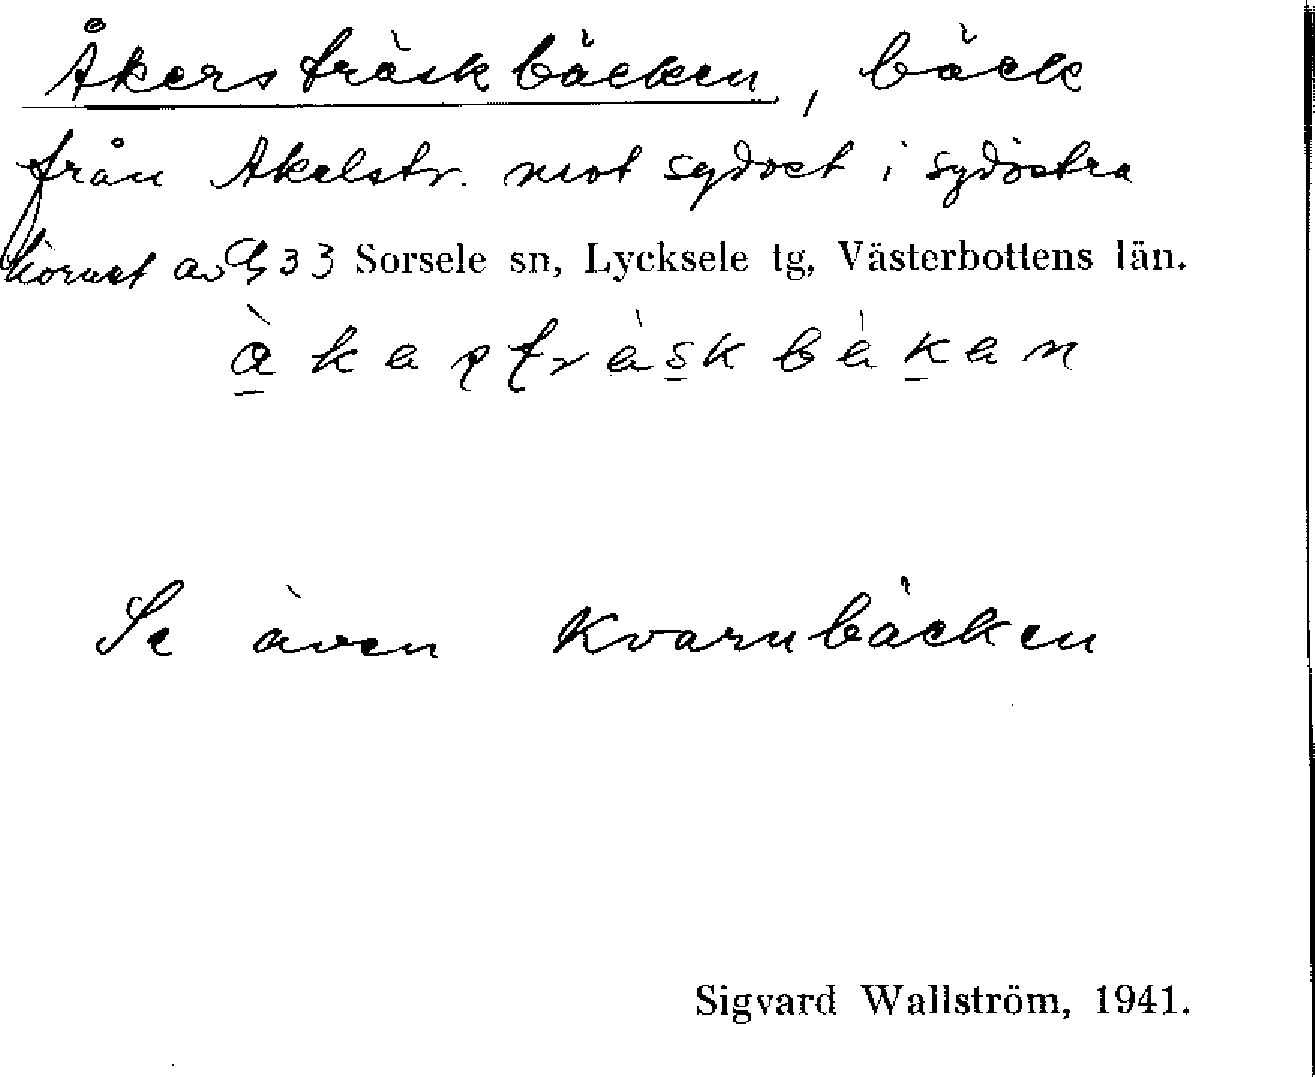 Åkersträskbäcken, bäck
från Akelstr. mot sydost i sydöstra
hörnet av G 33 Sorsele sn, Lycksele tg, Västerbottens län.
Se även Kvarnbäcken
Sigvard Wallström, 1941.